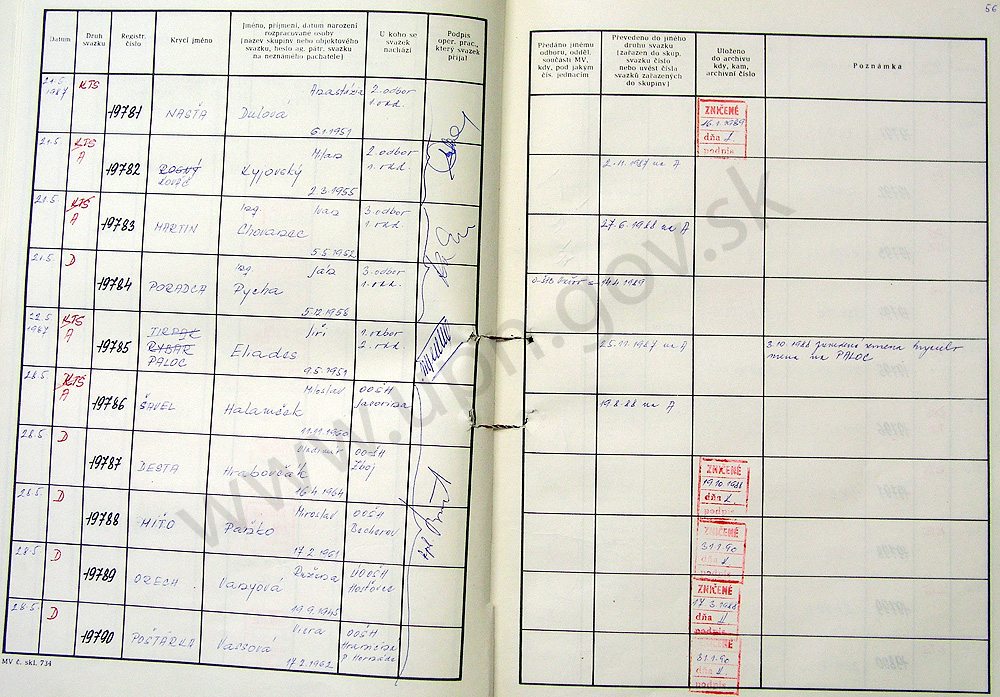 56
Datum
Druh
svazku
Registr.
číslo
Krycí jméno
Jméno, příjmení, datum narození
rozpracované osoby
[název skupiny nebo objektového
svazku, heslo ag. pátr. svazku
na neznámého pachatele]
U koho se
svazek
nachází
Podpis
oper. prac.,
který svazek
přijal
Předáno jinému
odboru, odděl.
součásti MV,
kdy, pod jakým
čís. jednacím
Převedeno do jiného
druhu svazku
[zařazen do skup.
svazku číslo
nebo uvést čísla
svazků zařazených
do skupiny]
Uloženo
do archivu
kdy, kam,
archivní číslo
Poznámka
21.5.
1987
KTS
19781
NASŤA
Anastázia
Dulová
6.1.1951
2. odbor
1. odd.
ZNIČENÉ
16.1.1989
dňa
podpis
21.5.
KTS
A
19782
Milan
Kyjovský
2.3.1955
2. odbor
1. odd.
2.11.1987 na A
21.5.
KTS
A
19783
MARTIN
Ing. Ivan
Chovanec
5.5.1952
3. odbor
1. odd.
27.6.1988 na A
21.5.
D
19784
PORADCA
Ing. Ján
Pycha
5.12.1958
3. odbor
1. odd.
14.4.1989
22.5.
1987
KTS
A
19785
RYBÁR
PALOC
Jiří
Eliades
9.5.1951
1. odbor
2. odd.
25.11.1987 na A
mena na PALOC
28.5.
KTS
A
19786
ŠAVEL
Miroslav
Halamíček
11.11.1960
OOŠH
Javorina
19.8.88 na A
28.5.
D
19787
DESTA
Vladimír
Hrabovčák
16.4.1964
OOŠH
Zboj
ZNIČENÉ
19.10.1988
dňa
podpis
28.5.
D
19788
MIŤO
Miroslav
Paňko
17.2.1961
OOŠH
Becherov
ZNIČENÉ
31.1.90
dňa
podpis
28.5.
D
19789
ORECH
Ružena
Vanyová
19.9.1945
OOŠH
Hosťovce
ZNIČENÉ
17.3.1988
dňa
podpis
28.5.
D
19790
POŠTÁRKA
Viera
Vassová
17.2.1962
OOŠH
ZNIČENÉ
31.1.90
dňa
podpis
MV č. skl. 734
www.upn.gov.sk